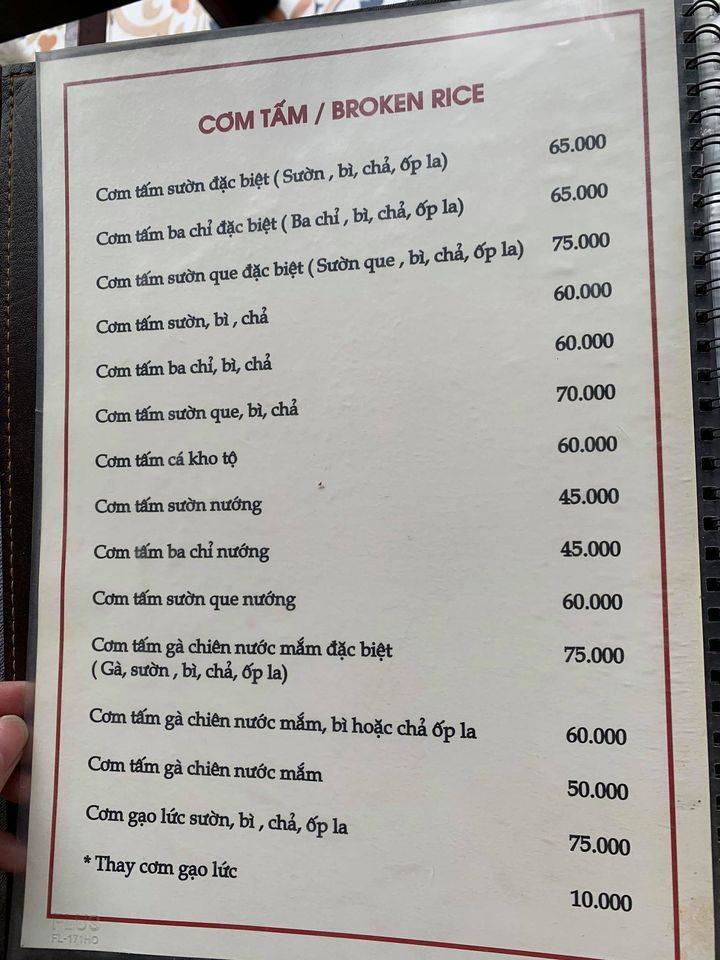 CƠM TẤM / BROKEN RICE
Cơm tấm sườn đặc biệt ( Sườn , bì, chả, ốp la) 65.000
Cơm tấm ba chỉ đặc biệt ( Ba chỉ , bì, chả, ốp la) 65.000
Cơm tấm sườn que đặc biệt ( Sườn que , bì, chả, ốp la) 75.000
Cơm tấm sườn, bì , chả 60.000
Cơm tấm ba chỉ, bì, chả 60.000
Cơm tấm sườn que, bì, chả 70.000
Cơm tấm cá kho tộ 60.000
Cơm tấm sườn nướng 45.000
Cơm tấm ba chỉ nướng 45.000
Cơm tấm sườn que nướng 60.000
Cơm tấm gà chiên nước mắm đặc biệt 75.000
( Gà, sườn , bì, chả, ốp la)
Cơm tấm gà chiên nước mắm, bì hoặc chả ốp la 60.000
Cơm tấm gà chiên nước mắm 50.000
Cơm gạo lức sườn, bì , chả, ốp la 75.000
* Thay cơm gạo lức 10.000
PLUS
FL-171HO